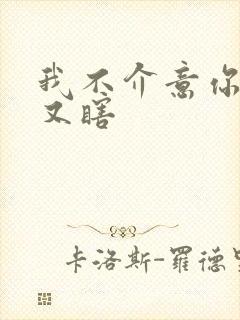 我不介意你
又瞎
卡洛斯-羅德